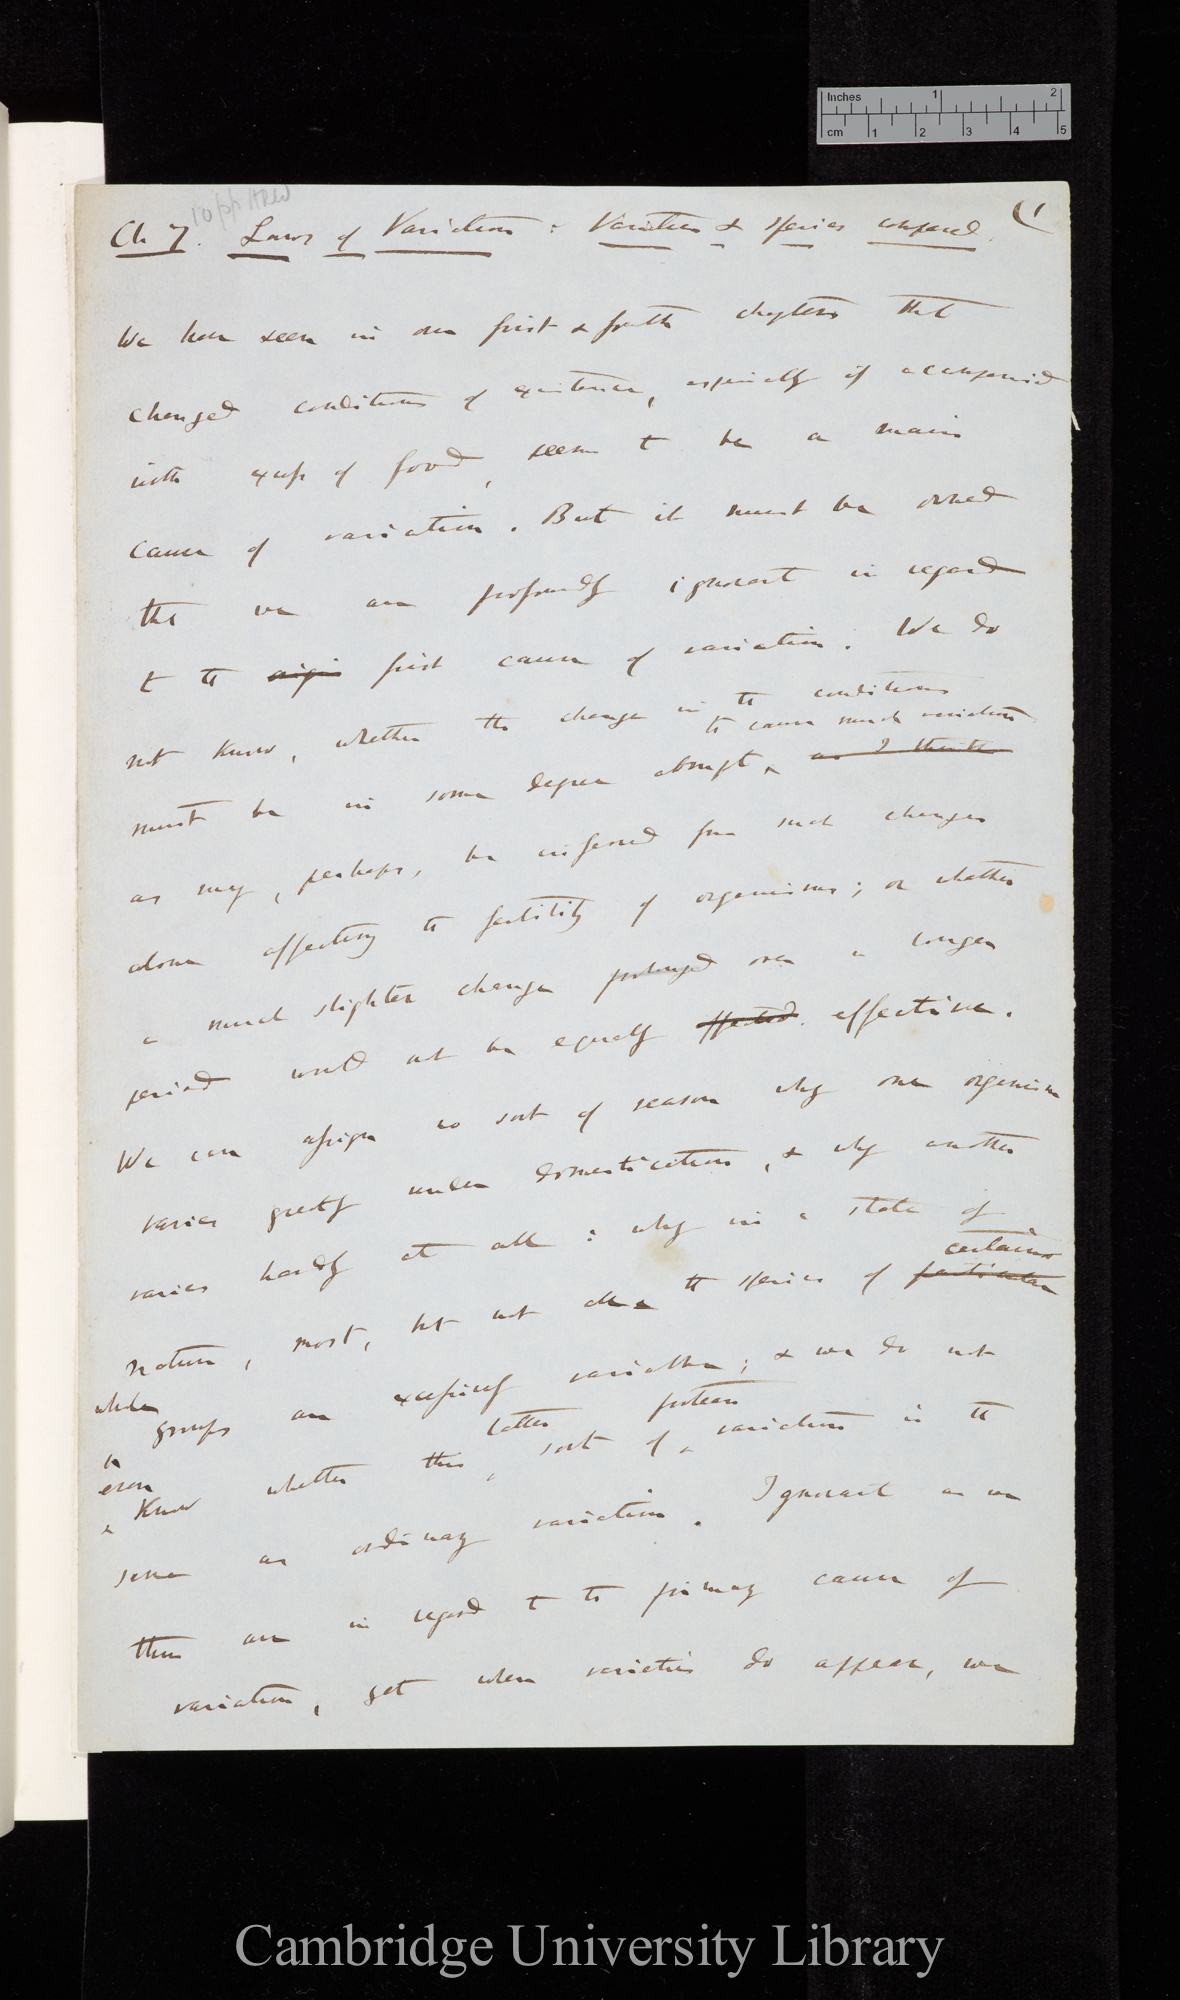 Inches 1 2
cm 1 2 3 4 5
10 pp
(1
Ch 7. Laws of Variation: Varieties & Species compared.
We have seen in our first & fourth chapters that
changed conditions of existence, especially if accompanied
with excess of food, seem to be a main
cause of variation. But it must be owned
that we are profoundly ignorant in regard
to the origin first cause of variation. We do
not know, whether the change in the conditions
to cause much variation
must be in some degree abrupt, as I think
as may, perhaps, be inferred from such changes
alone affecting the fertility of organisms; or whether
a much slighter change prolonged over a longer
period would not be equally effected effective.
We can assign no sort of reason why one organism
varies greatly under domestication, & why another
varies hardly at all: why in a state of
certain
nature, most, but not all the species of particular
whole
groups are excessively variable; & we do not
latter protean
even
know whether this sort of variation is the
same as ordinary variation. Ignorant as we
thus are in regard to the primary cause of
variation, yet when varieties do appear, we
Cambridge University Library